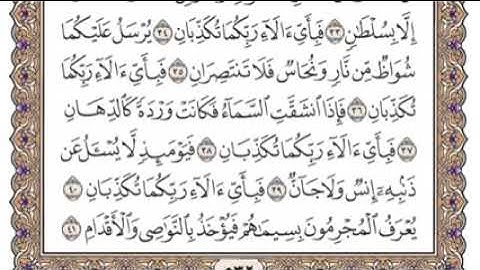 إِلَّا بِسُلْطَٰنٍ ٣٣ فَبِأَىِّ ءَالَآءِ رَبِّكُمَا تُكَذِّبَانِ ٣٤ يُرْسَلُ عَلَيْكُمَا
شُوَاظٌ مِّن نَّارٍ وَنُحَاسٌ فَلَا تَنتَصِرَانِ ٣٥ فَبِأَىِّ ءَالَآءِ رَبِّكُمَا
تُكَذِّبَانِ ٣٦ فَإِذَا ٱنشَقَّتِ ٱلسَّمَآءُ فَكَانَتْ وَرْدَةً كَٱلدِّهَانِ
٣٧ فَبِأَىِّ ءَالَآءِ رَبِّكُمَا تُكَذِّبَانِ ٣٨ فَيَوْمَئِذٍ لَّا يُسْـَٔلُ عَن
ذَنۢبِهِۦٓ إِنسٌ وَلَا جَآنٌّ ٣٩ فَبِأَىِّ ءَالَآءِ رَبِّكُمَا تُكَذِّبَانِ ٤٠
يُعْرَفُ ٱلْمُجْرِمُونَ بِسِيمَٰهُمْ فَيُؤْخَذُ بِٱلنَّوَٰصِى وَٱلْأَقْدَامِ ٤١